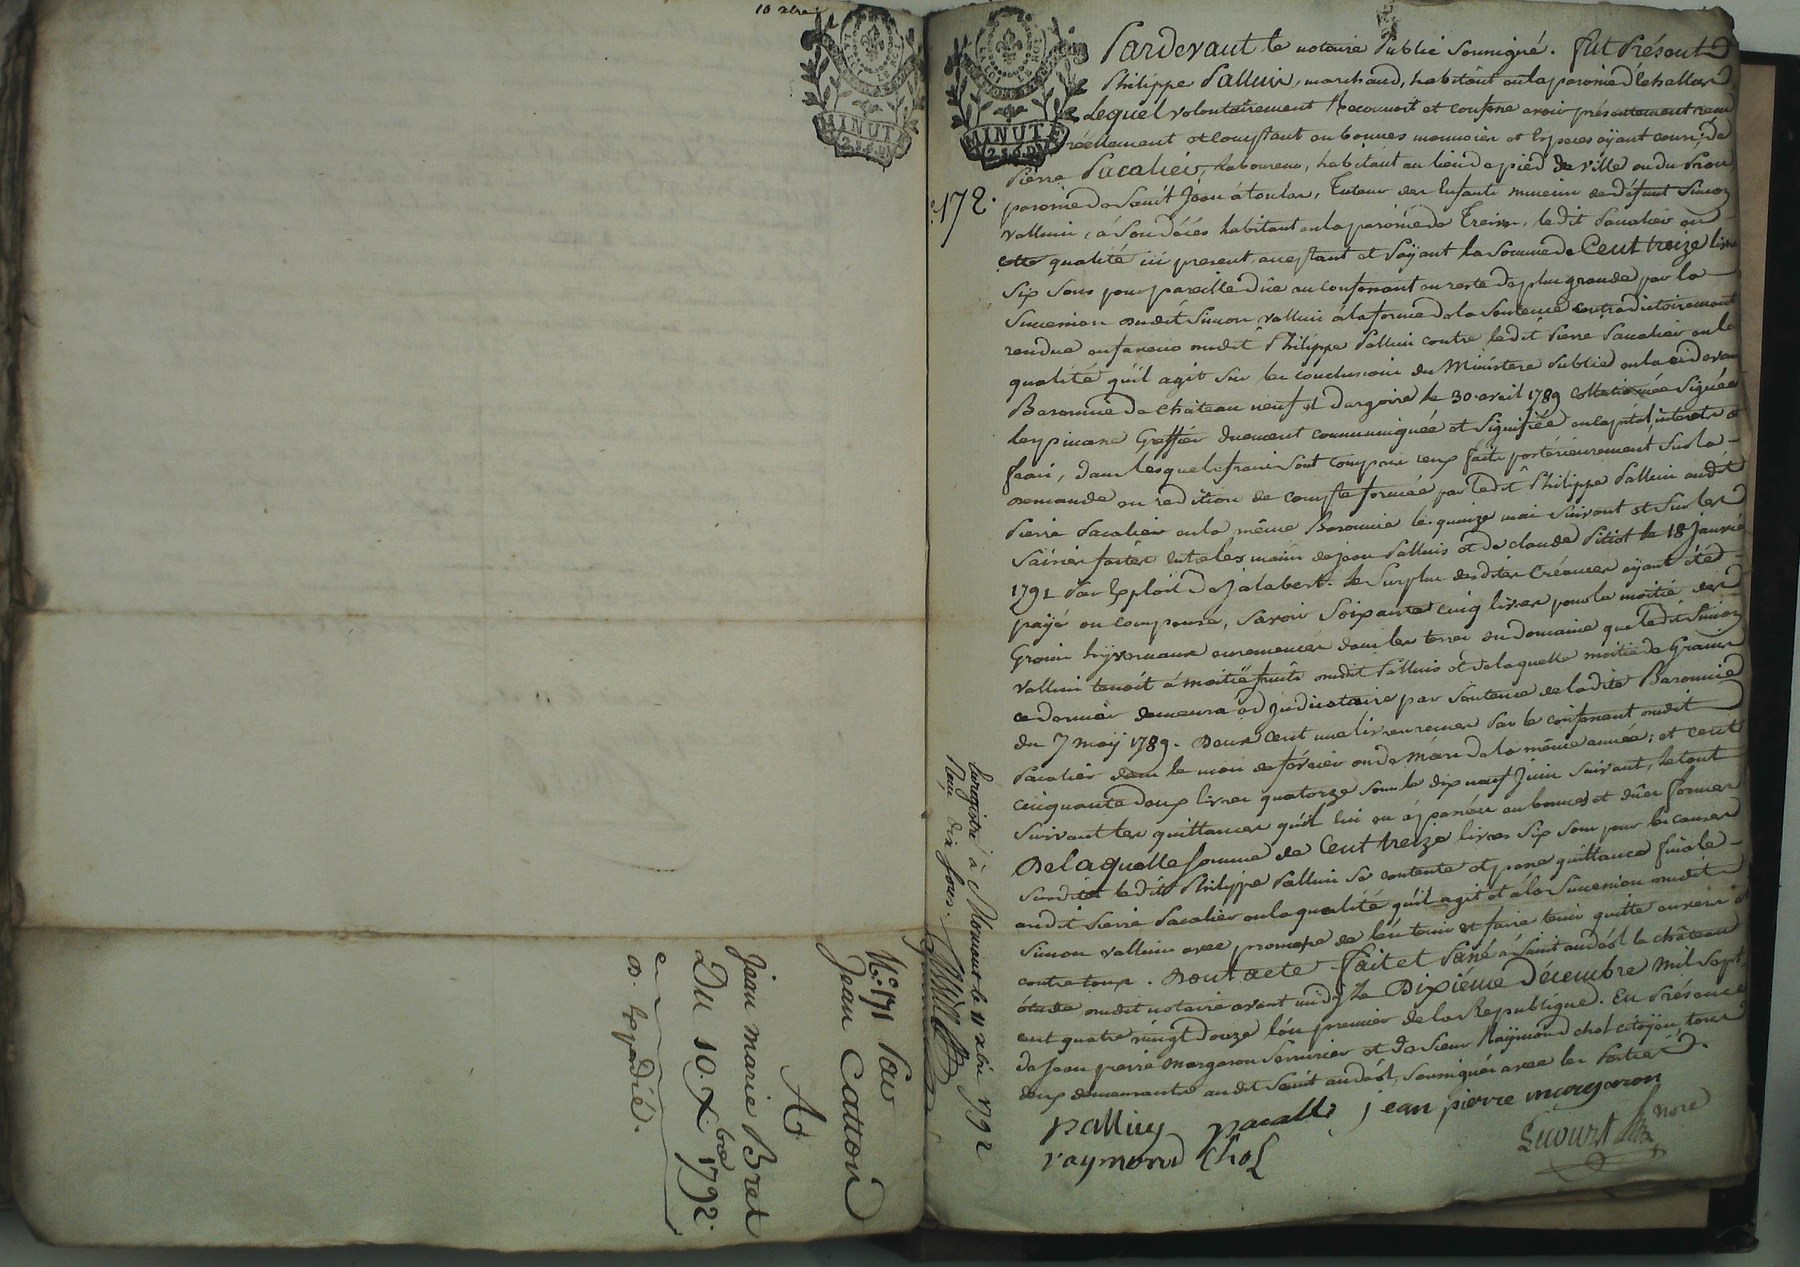 10 xbre
MINUTE
2 s. 6 d.
N.° 171 Par
Jean Catton
A
Jean marie Bret
Du 10. Xbre 1792.
Expédié.
MINUTE
2 s. 6 d.
172.
Pardevant le notaire Public soussigné. fut Présent
Philippe Palluis, marchand, habitant en la paroisse d'Echallas
Lequel volontairement Reconnoit et confesse avoir présentement reçu
réellement et comptant en bonnes monnoies et Especes aÿant cours, de
Pierre Pacalier, Laboureur, habitant au lieu de pied de ville ou du
paroisse de Saint Jean à toulas, Tuteur des Enfants mineurs de défunt Simon
valluin, à Son décès habitant en la paroisse de Treives, ledit Pacalier en
cette qualité ici présent, acceptant et Païant la Somme de Cent treize livres
Six Sous pour pareille dûe au confessant en reste de plus grande par la
Succession dudit Simon valluin à la forme de la Sentence contradictoirement
rendue en faveur dudit Philippe Palluis contre ledit Pierre Pacalier en la
qualité qu'il agit Sur les conclusions du Ministere Public en la cidevant
Baronnie de château neuf et dargoire le 30. avril 1789 collationnée Signée
Lespinasse Greffier duement communiquée et Signifiée en capital, interets et
frais, dans lesquels frais sont compris ceux faits postérieurement Sur la
demande en reddition de compte formée par ledit Philippe Palluis audit
Pierre Pacalier en la même Baronnie le quinze mai Suivant et Sur les
Saisies faites entre les mains de jean Palluis et de claude Pitiot le 18 Janvier
1791 Par Exploit de Jalabert. Le Surplus desdites Créances aÿant été
païé ou compensé, Savoir Soixante cinq livres pour la moitié des
Grains hÿvernaux ensemencés dans les terres du domaine que ledit Simon
valluin tenoit à moitié fruits dudit Palluis et de laquelle moitié de Grains
ce dernier demeura adjudicataire par Sentence de ladite Baronnie
du 7 maÿ 1789. Deux Cent une livre reçues Par le confessant dudit
Pacalier dans le mois de février ou de Mars de la même année; et cent
cinquante deux livres quatorze Sous le dix neuf Juin Suivant, le tout
Suivant les quittances qu'il lui en a passées en bonnes et dûes formes
De laquelle Somme de Cent treize livres Six Sous pour les causes
Susdites ledit Philippe Palluis Se contente et passe quittance finale
audit Pierre Pacalier en la qualité qu'il agit et à la Succession dudit
Simon valluin avec promesse de l'en tenir et faire tenir quitte envers et
contre tous. Dont acte fait et Passé à Saint andéol le château
étude dudit notaire avant midÿ Le Dixième Décembre Mil Sept
cent quatre vingt douze l'an premier de la République. En Présence
de Jean pierre Margaron Serrurier et de Sieur Raÿmond chol citoÿen, tous
deux demeurants audit Saint andéol, Soussignés avec les Parties.
palluy pacalli jean pierre margaron
raymond Chol
nore
Enregistré à Mornant le 11 xbre 1792
Reçu dix sous.